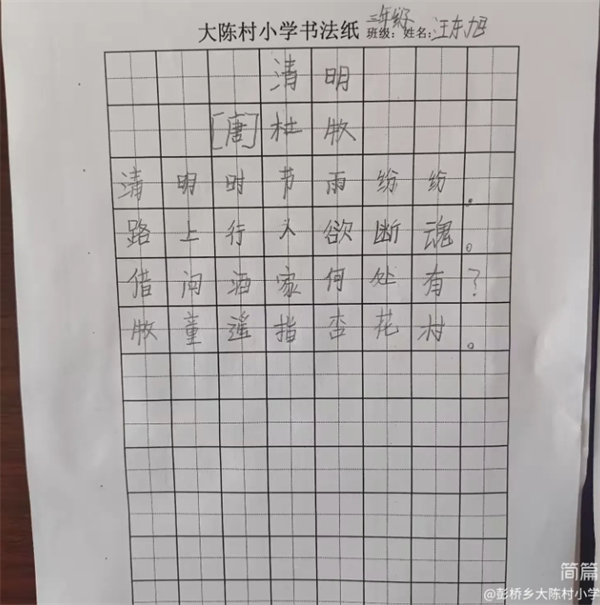 大陈村小学书法纸 班级：三年级 姓名：汪东旭
清明
[唐]杜牧
清明时节雨纷纷，
路上行人欲断魂。
借问酒家何处有？
牧童遥指杏花村。
简篇
@彭桥乡大陈村小学